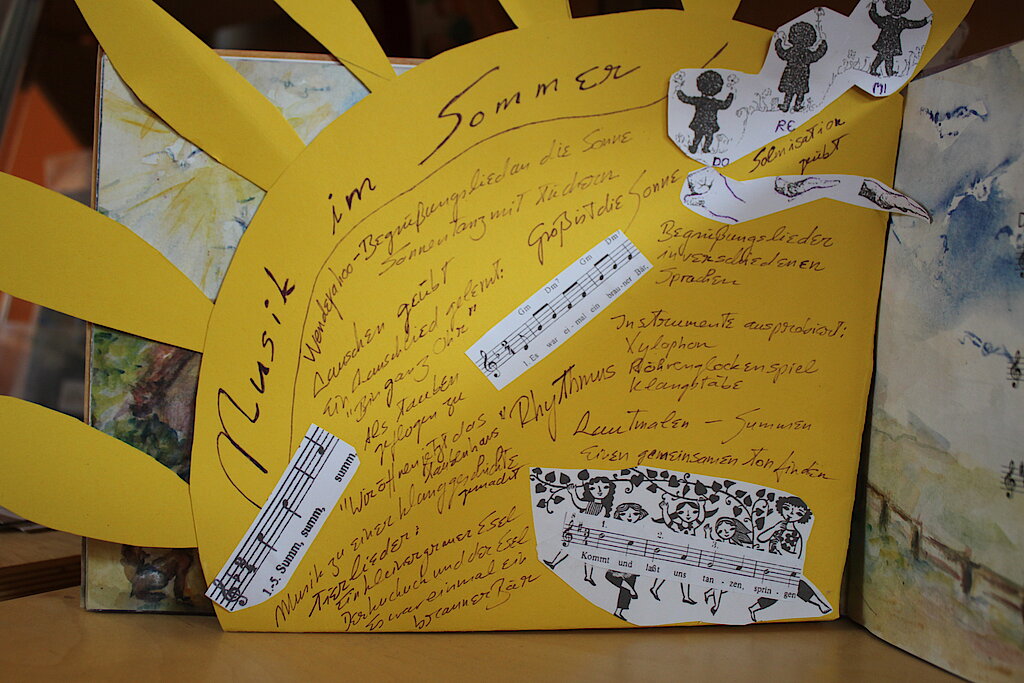 Musik im Sommer
Wendejahoo - Begrüßungslied an die Sonne
Sonnentanz mit Tüchern
Lauschen geübt
Ein Lauschlied gelernt:
"Bin ganz Ohr"
Als Tauben
geflogen zu
"Wir öffnen jetzt das
Taubenhaus
Musik zu einer Klanggeschichte
gemacht
Tierlieder:
Ein kleiner grauer Esel
Der Kuckuck und der Esel
Es war einmal ein
brauner Bär
1.-5. Summ, summ, summ.
Groß ist die Sonne
Gm Dm7 Gm Dm7
1. Es war ei-mal ein brau-ner Bär,
"Rhythmus
DO RE MI
Solmisation
geübt
Begrüßungslieder
in verschiedenen
Sprachen
Instrumente ausprobiert:
Xylophon
Röhrenglockenspiel
Klangstäbe
Lautmalen - Summen
Einen gemeinsamen Ton finden
1. 2. 3.
Kommt und laßt uns tan - zen, sprin - gen